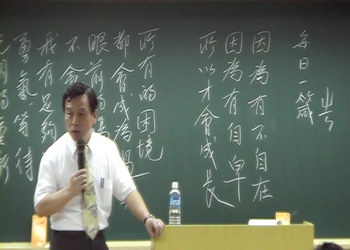 每日一箴
因為有不自在
因為有自卑
所以才會成長
所有的困境
都會成為過
眼前的
不會
我有足夠
勇氣等待